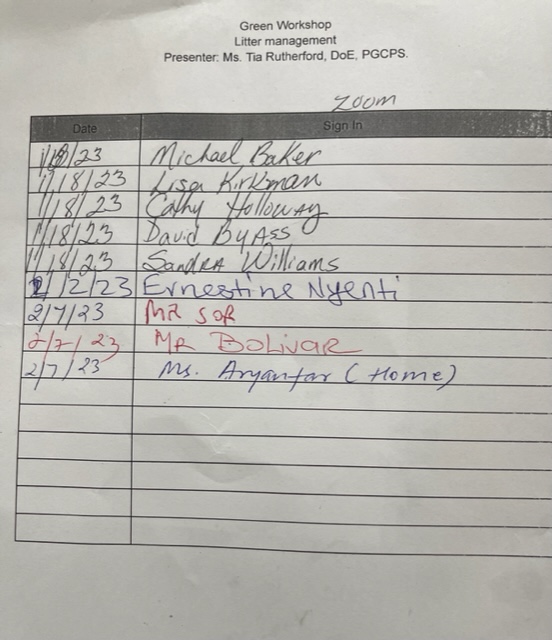 Green Workshop
Litter management
Presenter: Ms. Tia Rutherford, DoE, PGCPS.
Zoom
Date Sign In
1/18/23 Michael Baker
1/18/23 Lisa Kirkman
1/18/23 Cathy Holloway
1/18/23 David ByAss
1/18/23 Sandra Williams
2/2/23 Ernestine Nyenti
2/7/23 MR SOR
2/7/23 MR Bolivar
2/7/23 Ms. Aryanfar (Home)